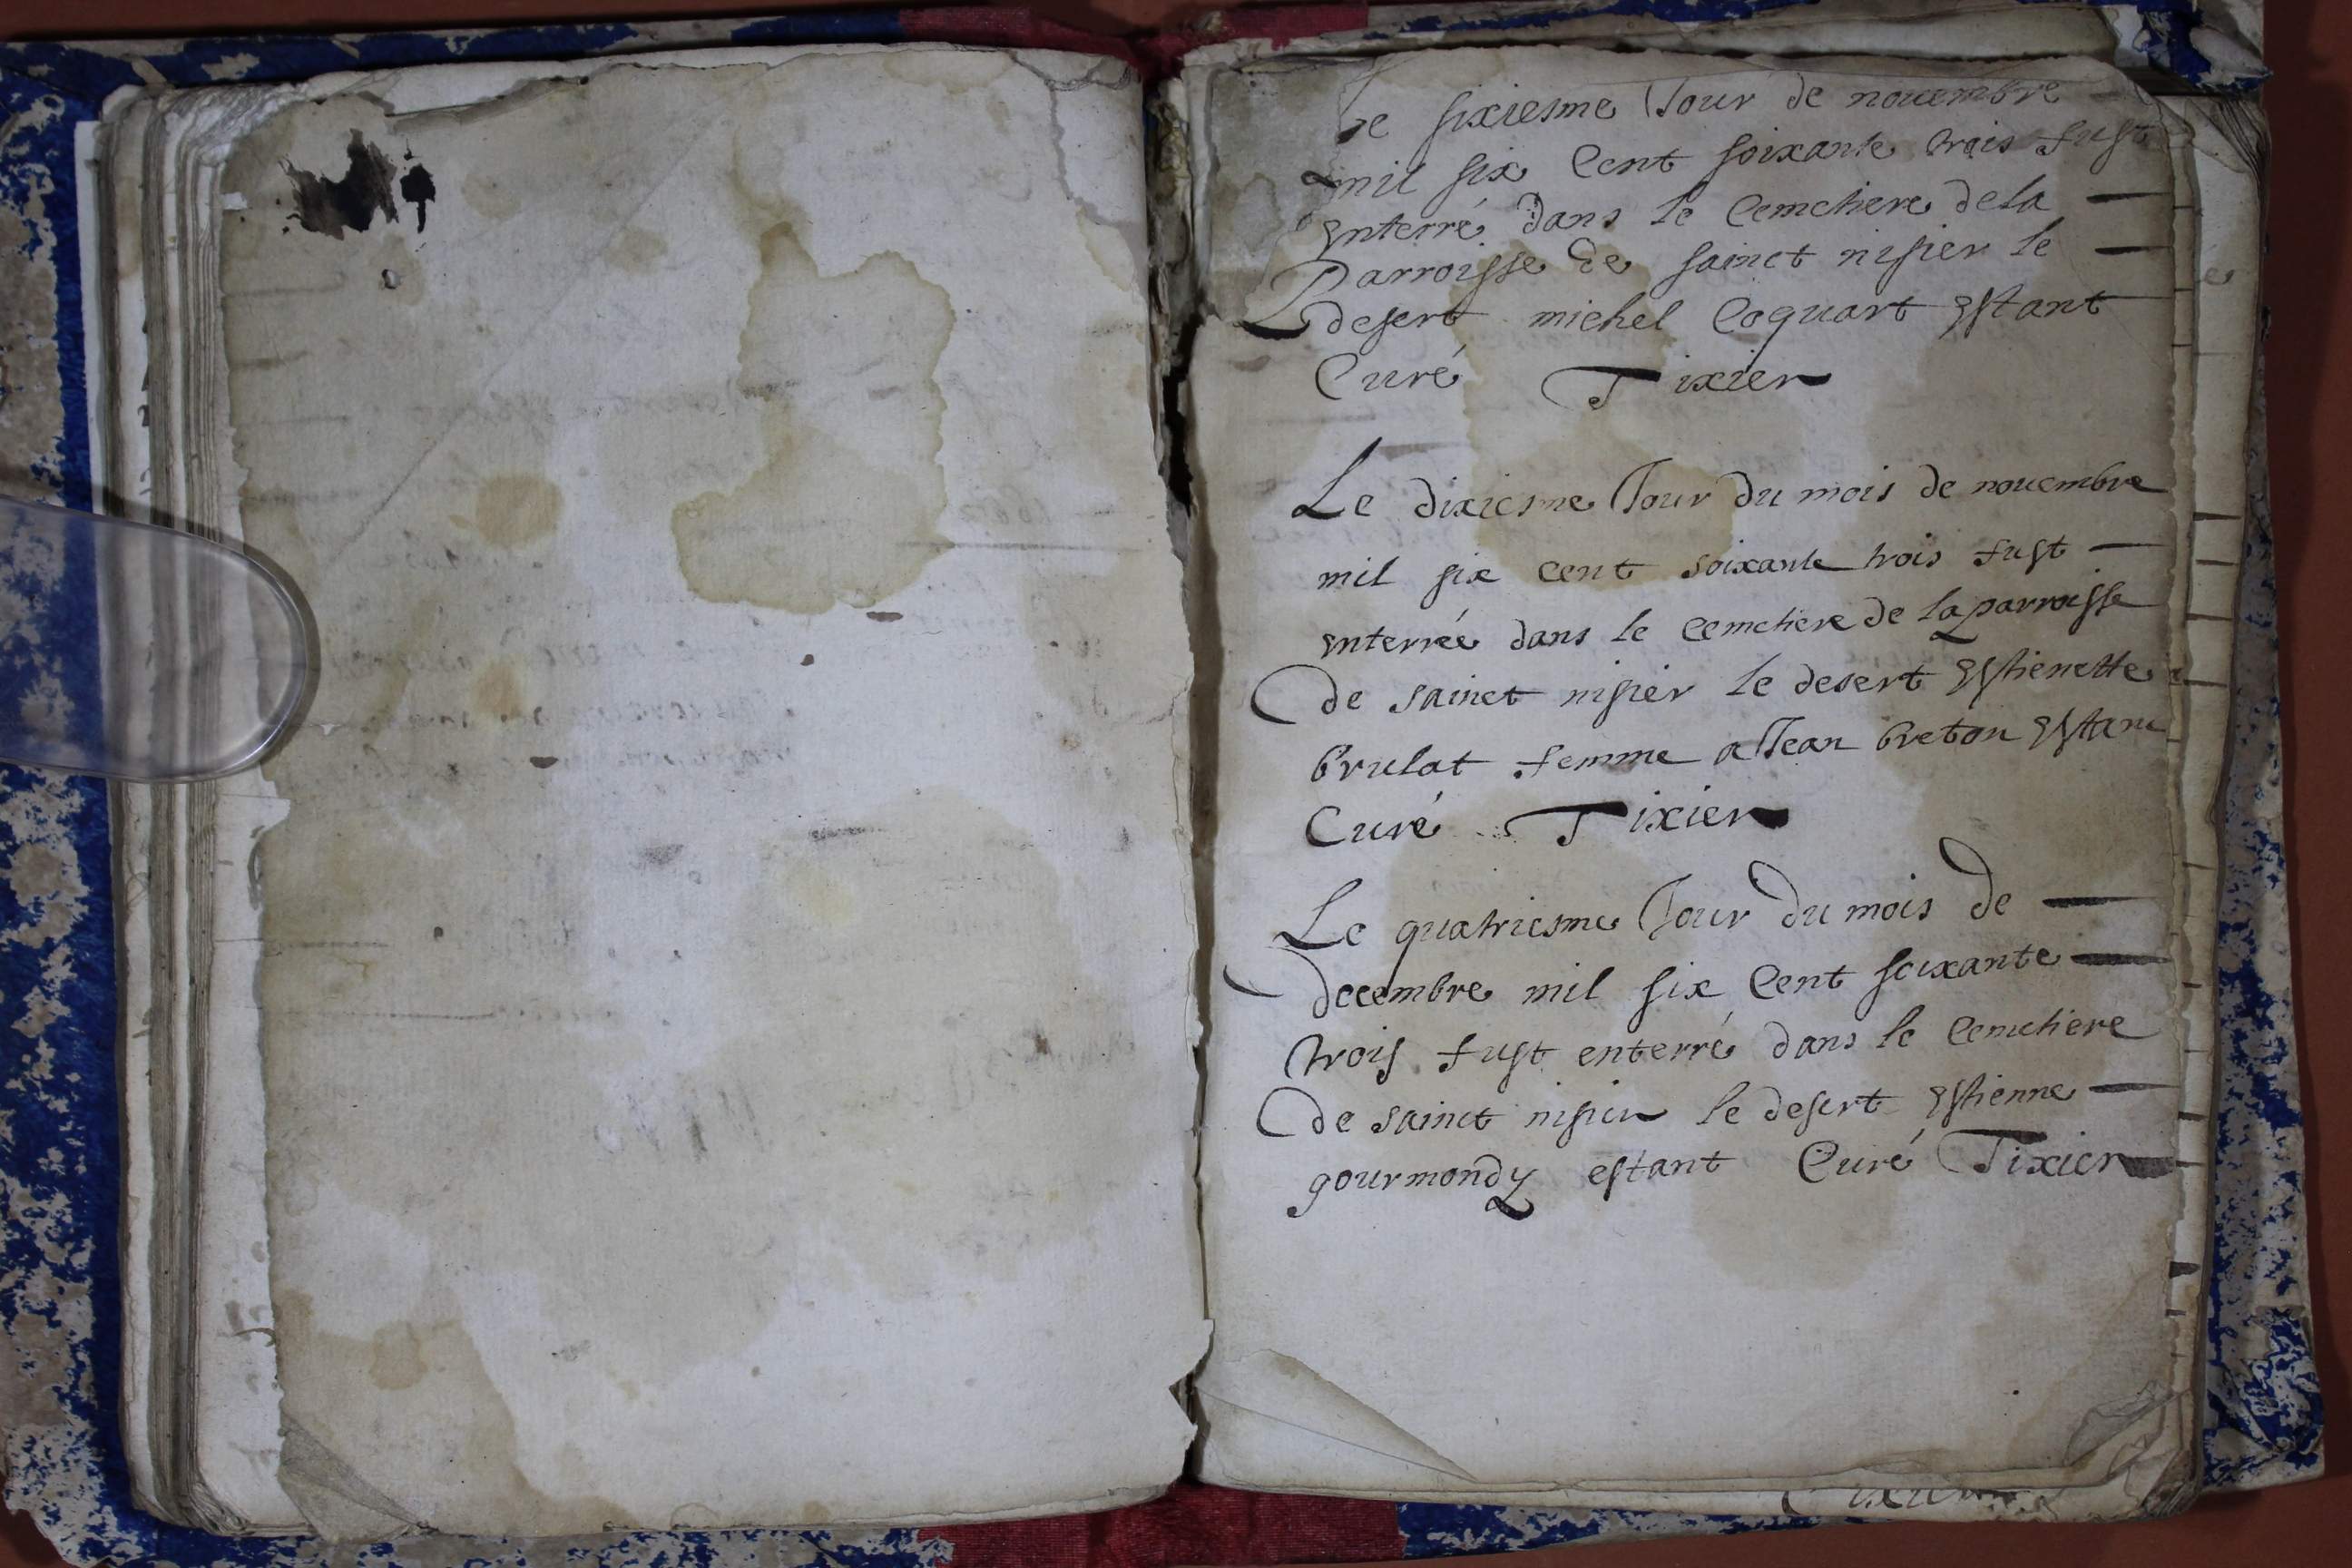 Le sixiesme Jour de nouembre
mil six Cent soixante trois fust
enterré dans le Cemetiere de la
Parroisse de sainct nisier le
desert michel Coquart estant
Curé Tixier
Le dixiesme Jour du mois de nouembre
mil six cent soixante trois fust
enterrée dans le cemetiere de la parroisse
de sainct nisier le desert Estienette
brulat femme a Jean breton Estant
Curé Tixier
Le quatriesme Jour du mois de
decembre mil six Cent soixante
trois fust enterré dans le Cemetiere
de sainct nisier le desert Estienne
gourmondy estant Curé Tixier